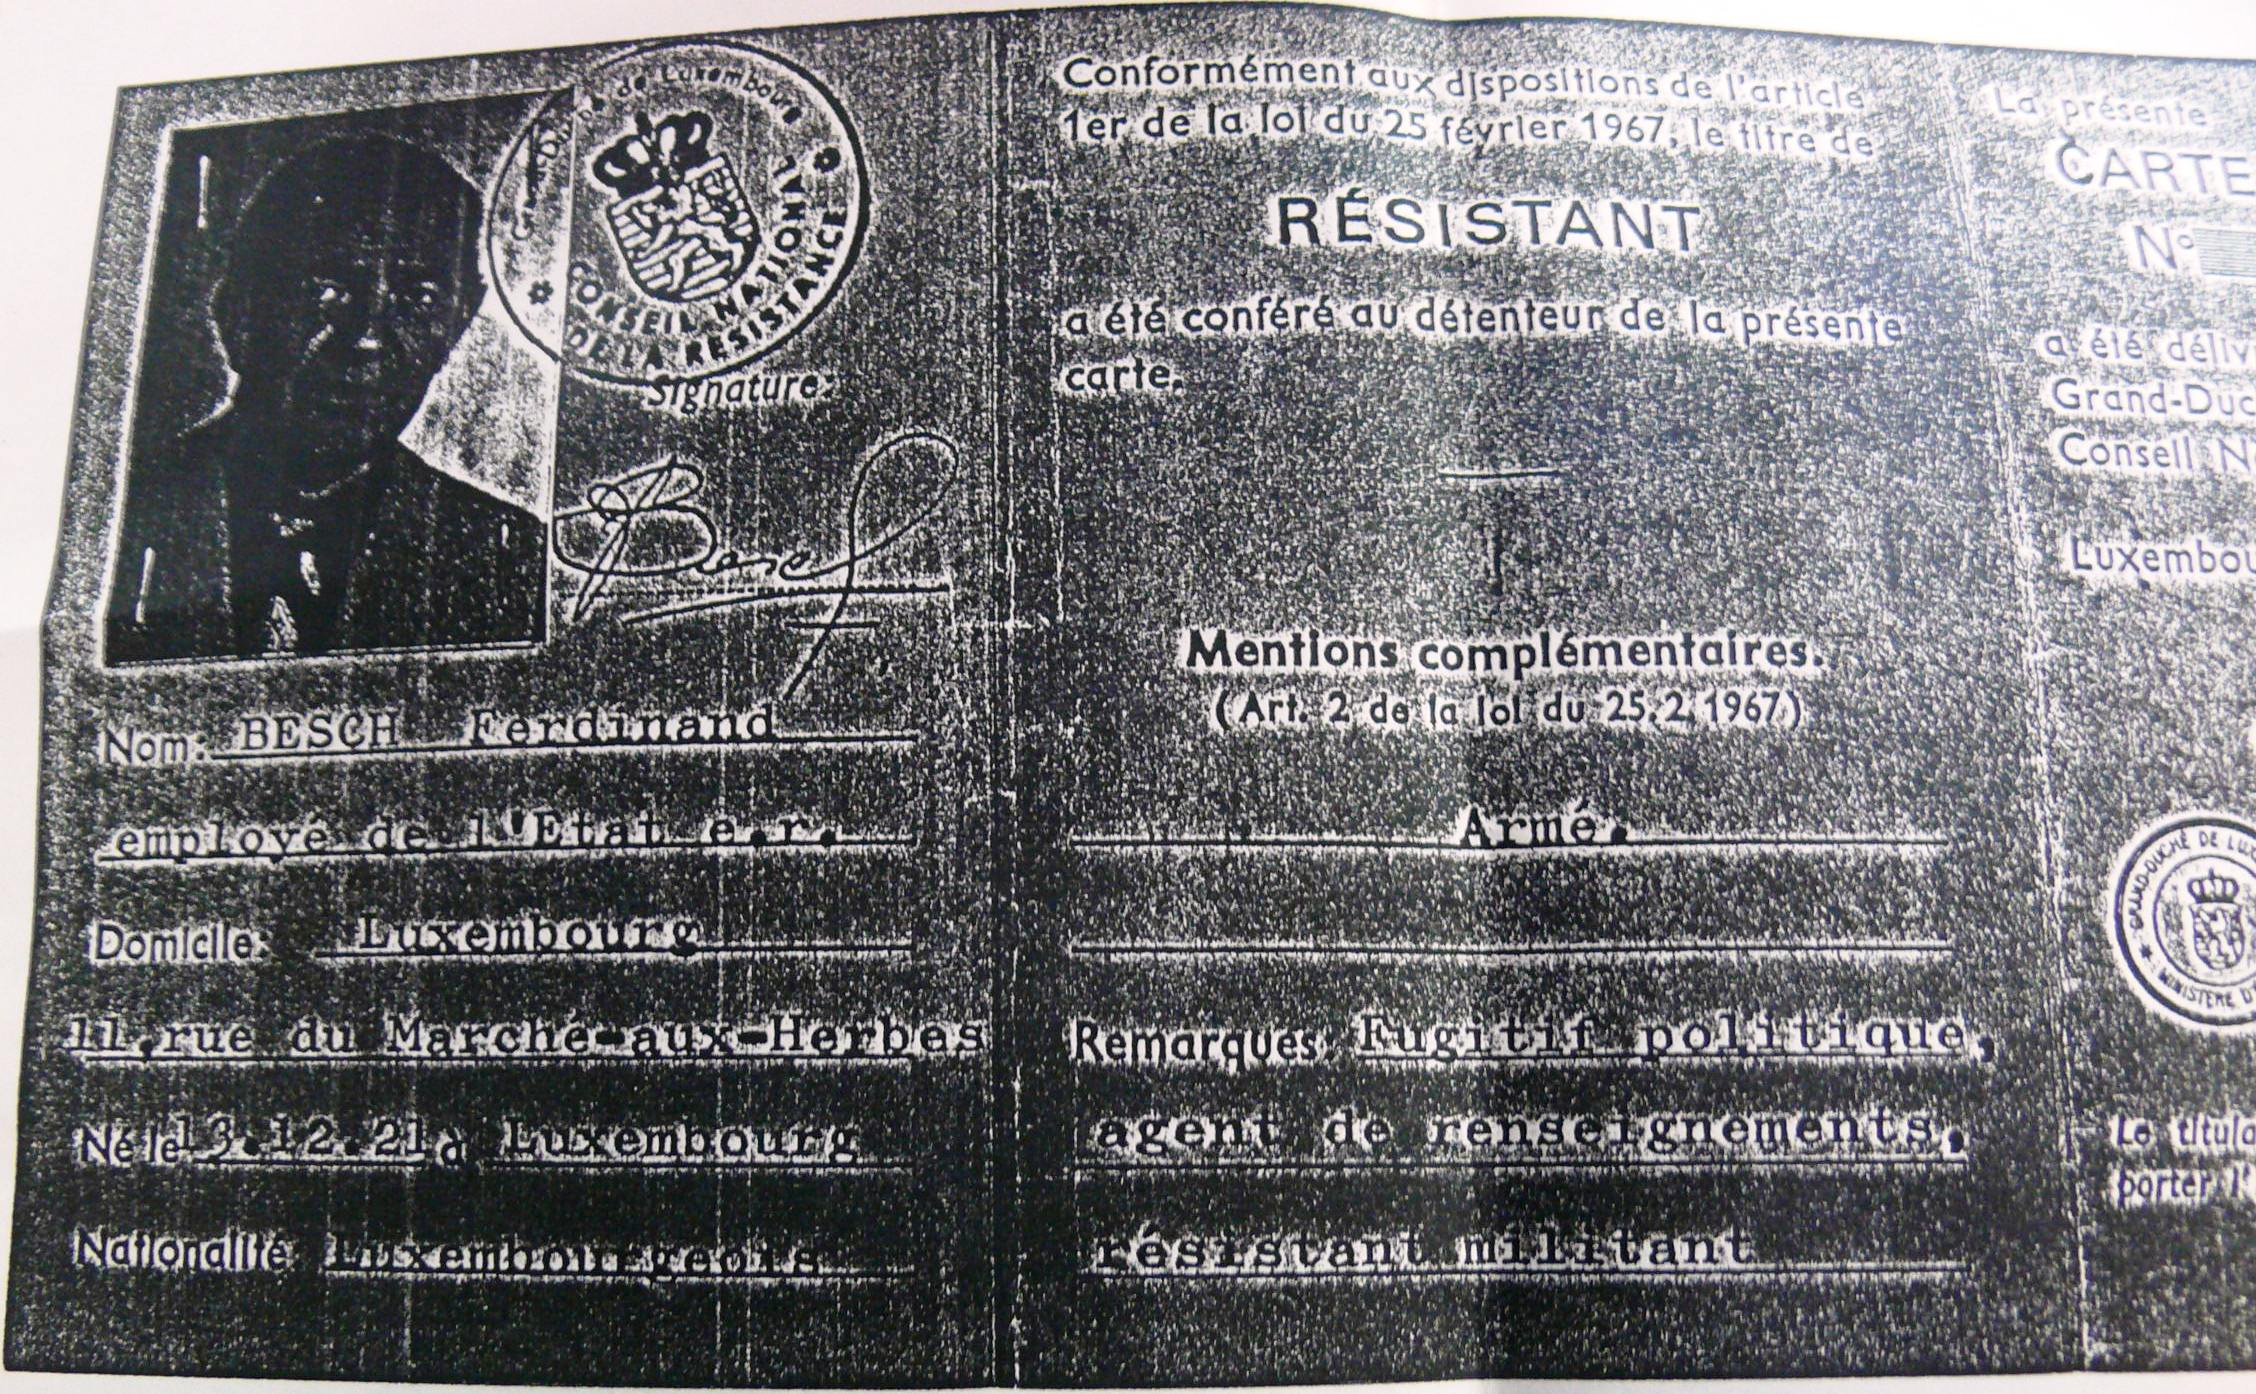 Grand-Duché de Luxembourg
CONSEIL NATIONAL
DE LA RESISTANCE
Signature:
Besch
Nom: BESCH Ferdinand
employé de l'Etat e.r.
Domicile: Luxembourg
11,rue du Marché-aux-Herbes
Né le 13.12.21 à Luxembourg
Nationalité Luxembourgeois
Conformément aux dispositions de l'article
1er de la loi du 25 février 1967, le titre de
RÉSISTANT
a été conféré au détenteur de la présente
carte.
Mentions complémentaires.
(Art. 2 de la loi du 25.2.1967)
Armé.
Remarques: Fugitif politique,
agent de renseignements,
résistant militant
La présente
CARTE
N°
a été déliv
Grand-Duc
Conseil N
Luxembou
GRAND-DUCHÉ DE LUX
MINISTÈRE D'
Le titula
porter l'